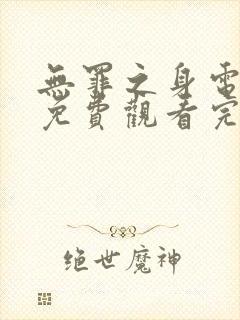 無罪之身電
免費觀看完
绝世魔神